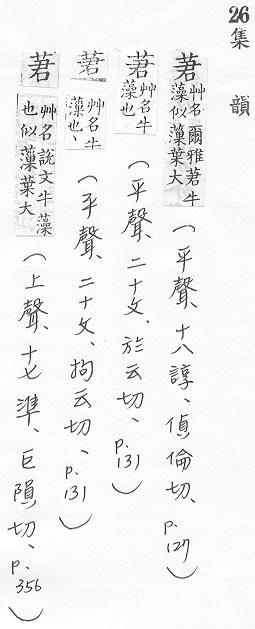 26集 韻
莙 艸名爾雅莙牛藻似薻葉大 (平聲、十八諄、偵倫切、p.127)
莙 艸名牛藻也 (平聲、二十文、於云切、p.131)
莙 艸名牛藻也 (平聲、二十文、拘云切、p.131)
莙 艸名說文牛藻也似薻葉大 (上聲、十七準、巨隕切、p.356)